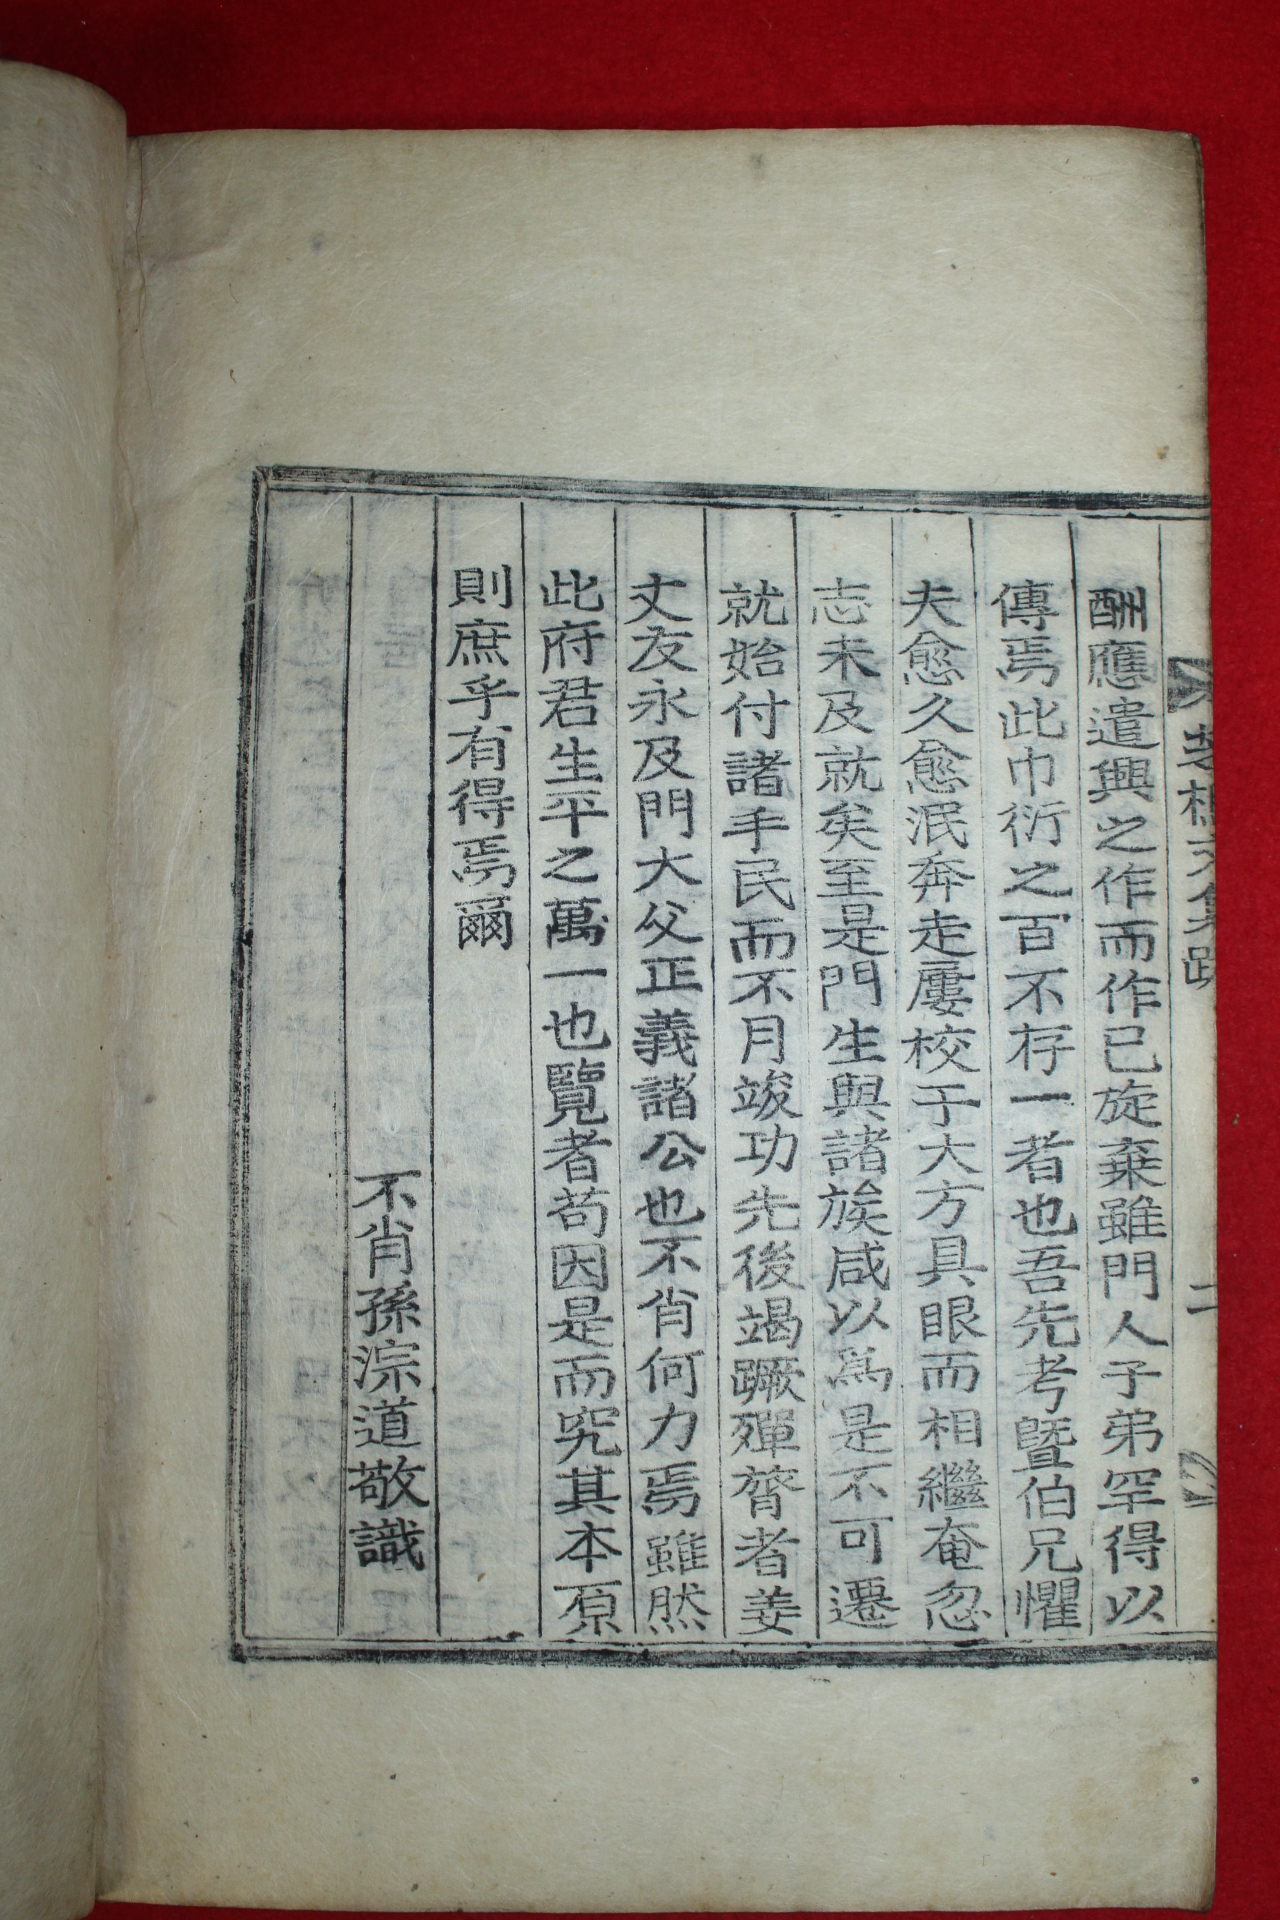 酬應遣興之作而作已旋棄雖門人子弟罕得以
傳焉此巾衍之百不存一者也吾先考曁伯兄懼
夫愈久愈泯奔走屢校于大方具眼而相繼奄忽
志未及就矣至是門生與諸族咸以爲是不可遷
就始付諸手民而不月竣功先後竭蹶殫膂者姜
丈友永及門大父正義諸公也不肖何力焉雖然
此府君生平之萬一也覽者苟因是而究其本原
則庶乎有得焉爾
不肖孫淙道敬識